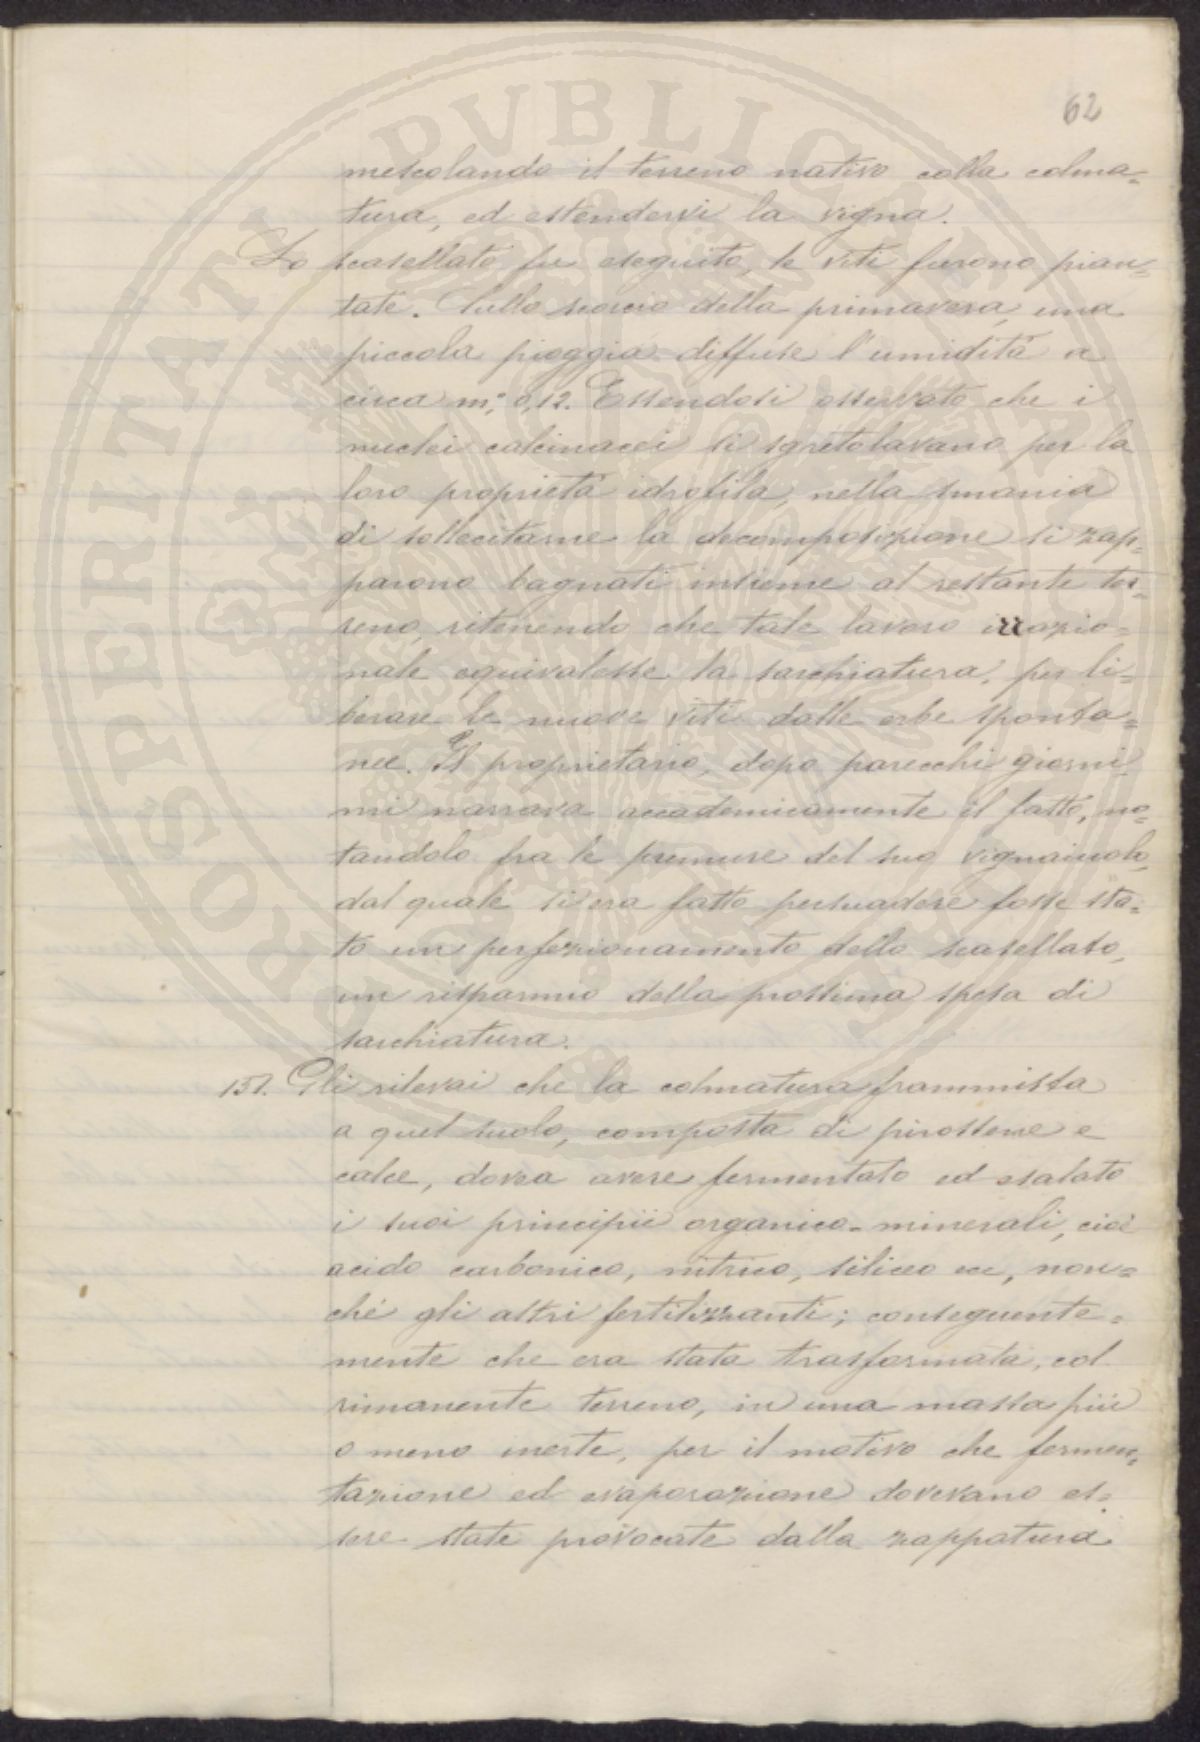 62
mescolando il terreno nativo colla colma=
tura, ed estendervi la vigna.
Lo scasellato fu eseguito, le viti furono pian=
tate. Sullo scorcio della primavera, una
piccola pioggia diffuse l'umidità a
circa m: 0,12. Essendosi osservato che i
nuclei calcinacci si sgretolavano per la
loro proprietà idrofila, nella smania
di sollecitarne la decomposizione si zap=
parono bagnati insieme al restante ter=
reno, ritenendo che tale lavoro irrazio=
nale equivalesse la sarchiatura, per li=
berare le nuove viti dalle erbe sponta=
nee. Il proprietario, dopo parecchi giorni
mi narrava accademicamente il fatto, no=
tandolo fra le premure del suo vignaiuolo,
dal quale si era fatto persuadere fosse sta=
to un perfezionamento dello scasellato,
un risparmio della prossima spesa di
sarchiatura.
157. Gli rilevai che la colmatura frammista
a quel suolo, composta di pirossene e
calce, dovea avere fermentato ed esalato
i suoi principii organico-minerali, cioè
acido carbonico, nitrico, siliceo ecc, non=
chè gli altri fertilizzanti; conseguente=
mente che era stata trasformata, col
rimanente terreno, in una massa più
o meno inerte, per il motivo che fermen=
tazione ed evaporazione dovevano es=
sere state provocate dalla zappatura
PROSPERITATI PVBLICAE